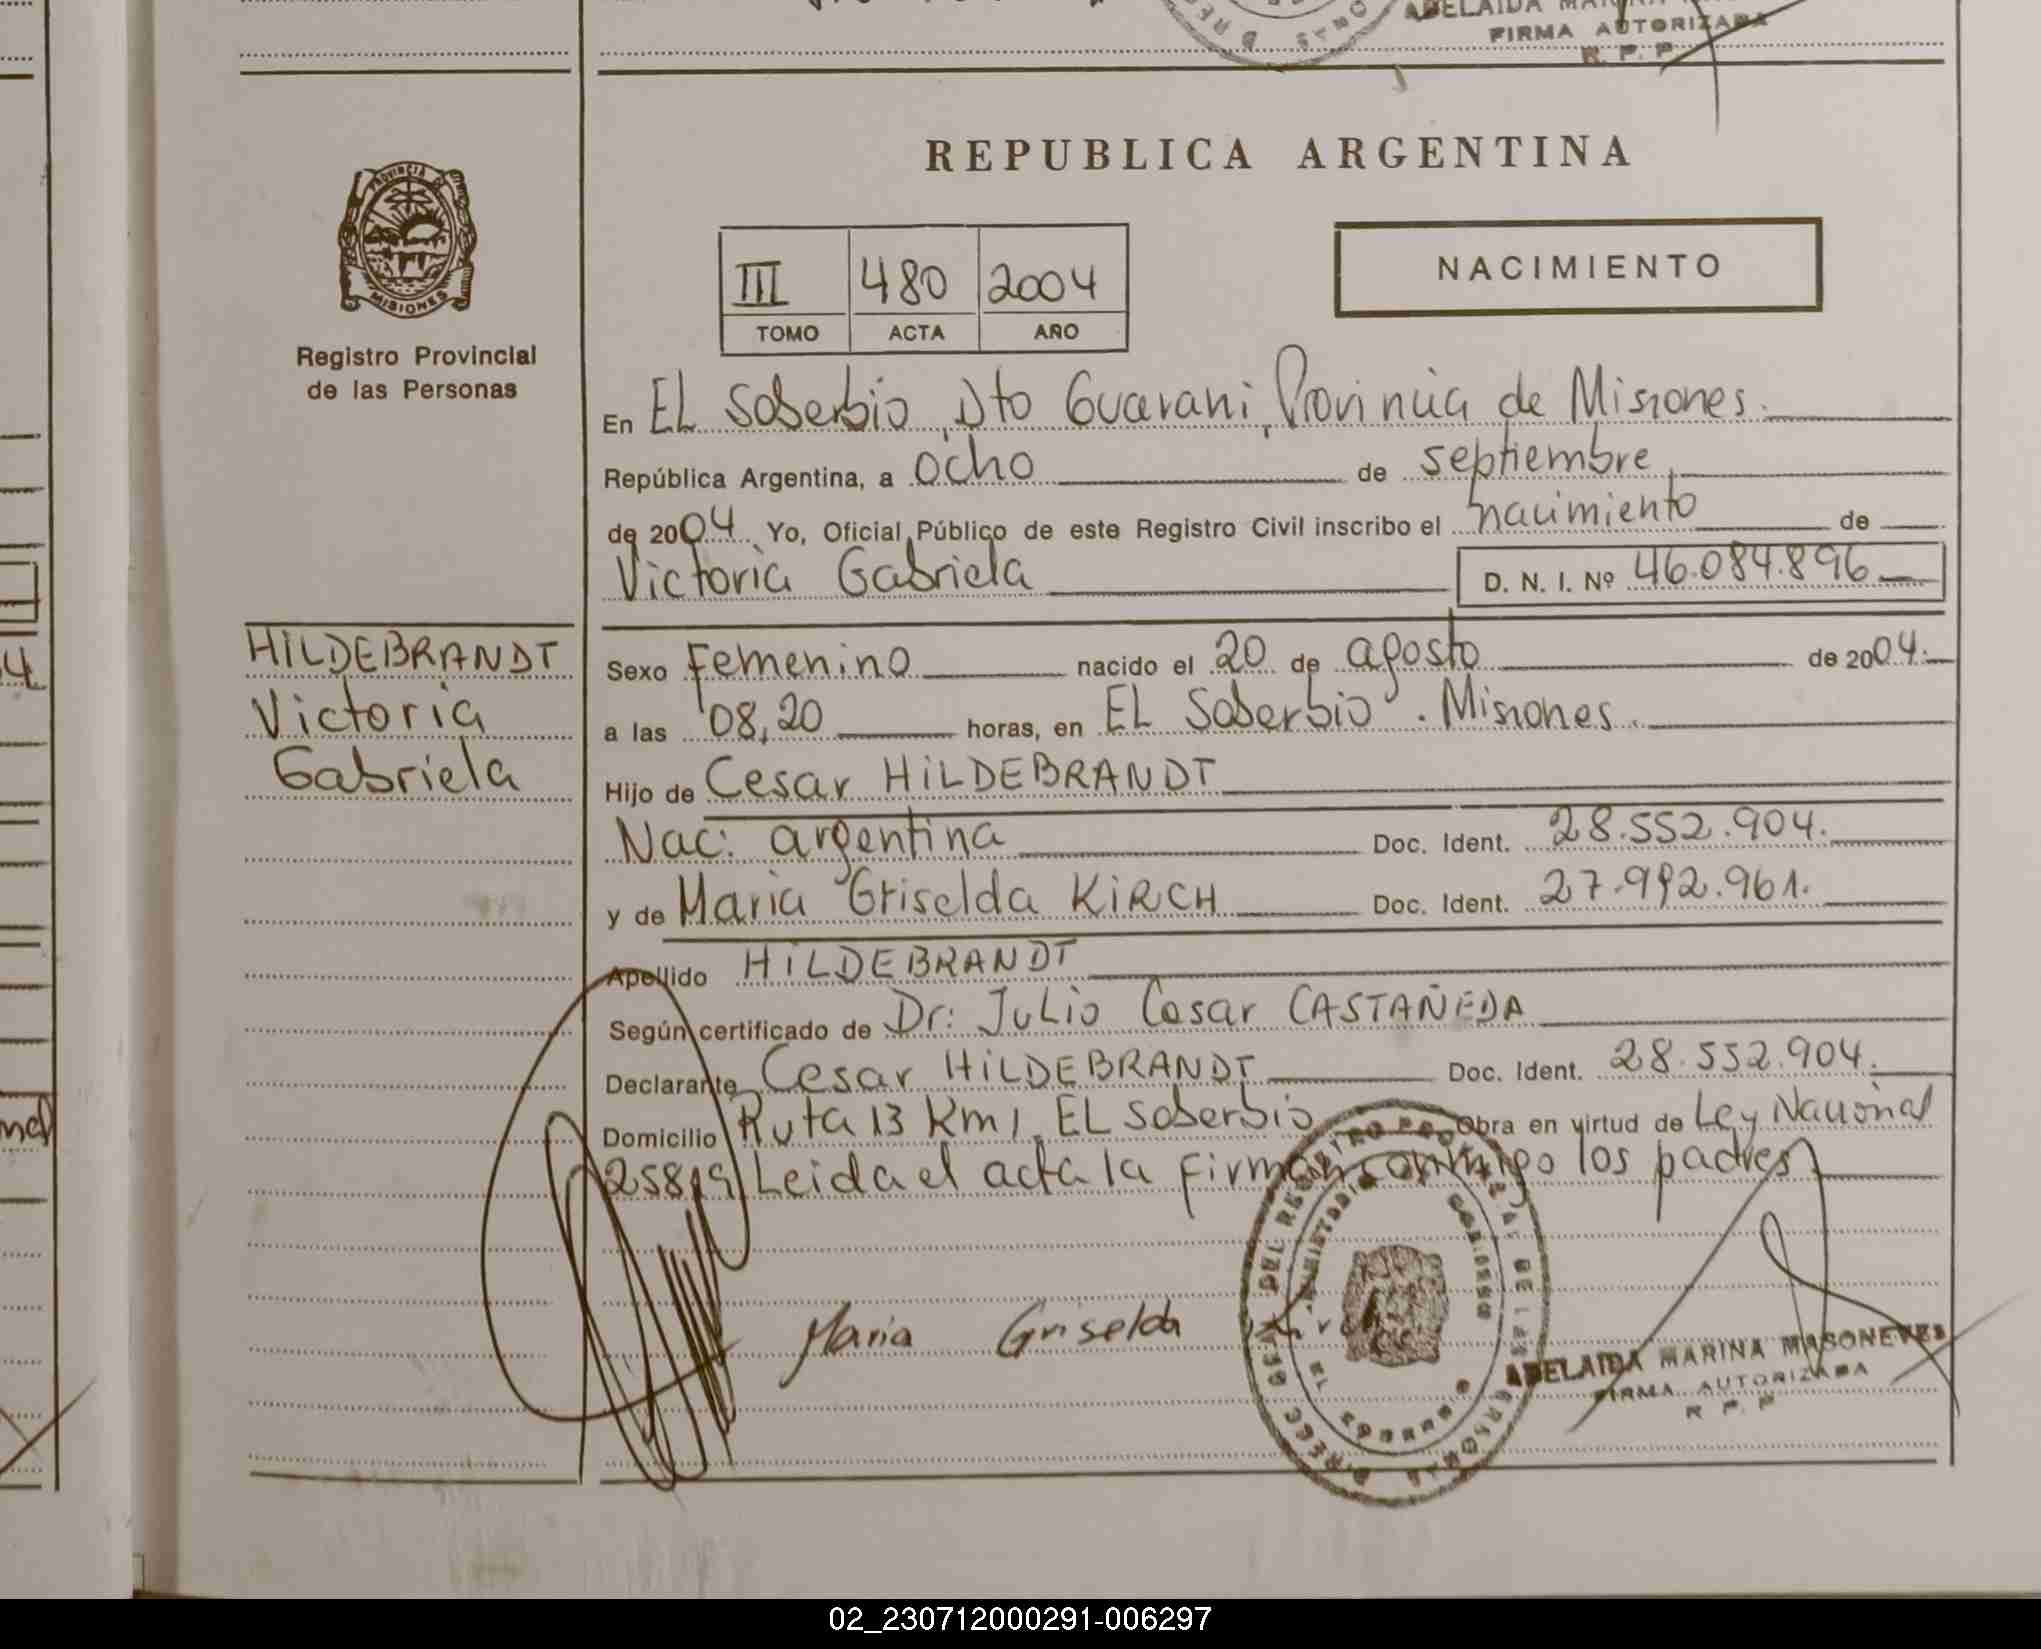 ADELAIDA
FIRMA AUTORIZADA
R. P. P.
REPUBLICA ARGENTINA
PROVINCIA DE
MISIONES
Registro Provincial
de las Personas
III 480 2004
TOMO ACTA AÑO
NACIMIENTO
En EL Soberbio, Dto Guarani, Provincia de Misiones.
República Argentina, a ocho de septiembre
de 2004. Yo, Oficial Público de este Registro Civil inscribo el nacimiento de
Victoria Gabriela D. N. I. Nº 46.084.896
HiLDEBRANDT
Victoria
Gabriela
Sexo Femenino nacido el 20 de agosto de 2004.
a las 08,20 horas, en EL Soberbio. Misiones.
Hijo de Cesar HiLDEBRANDT
Nac: argentina Doc. Ident. 28.552.904.
y de Maria Griselda KiRCH Doc. Ident. 27.992.961.
Apellido HiLDEBRANDT
Según certificado de Dr: Julio Cesar CASTAÑEDA
Declarante Cesar HiLDEBRANDT Doc. Ident. 28.552.904.
Domicilio Ruta 13 Km 1, EL Soberbio Obra en virtud de Ley Nacional
25819 Leida el acta la firman conmigo los padres
Maria Griselda
ADELAIDA MARINA MASONEVES
FIRMA AUTORIZADA
R. P. P.
02_230712000291-006297